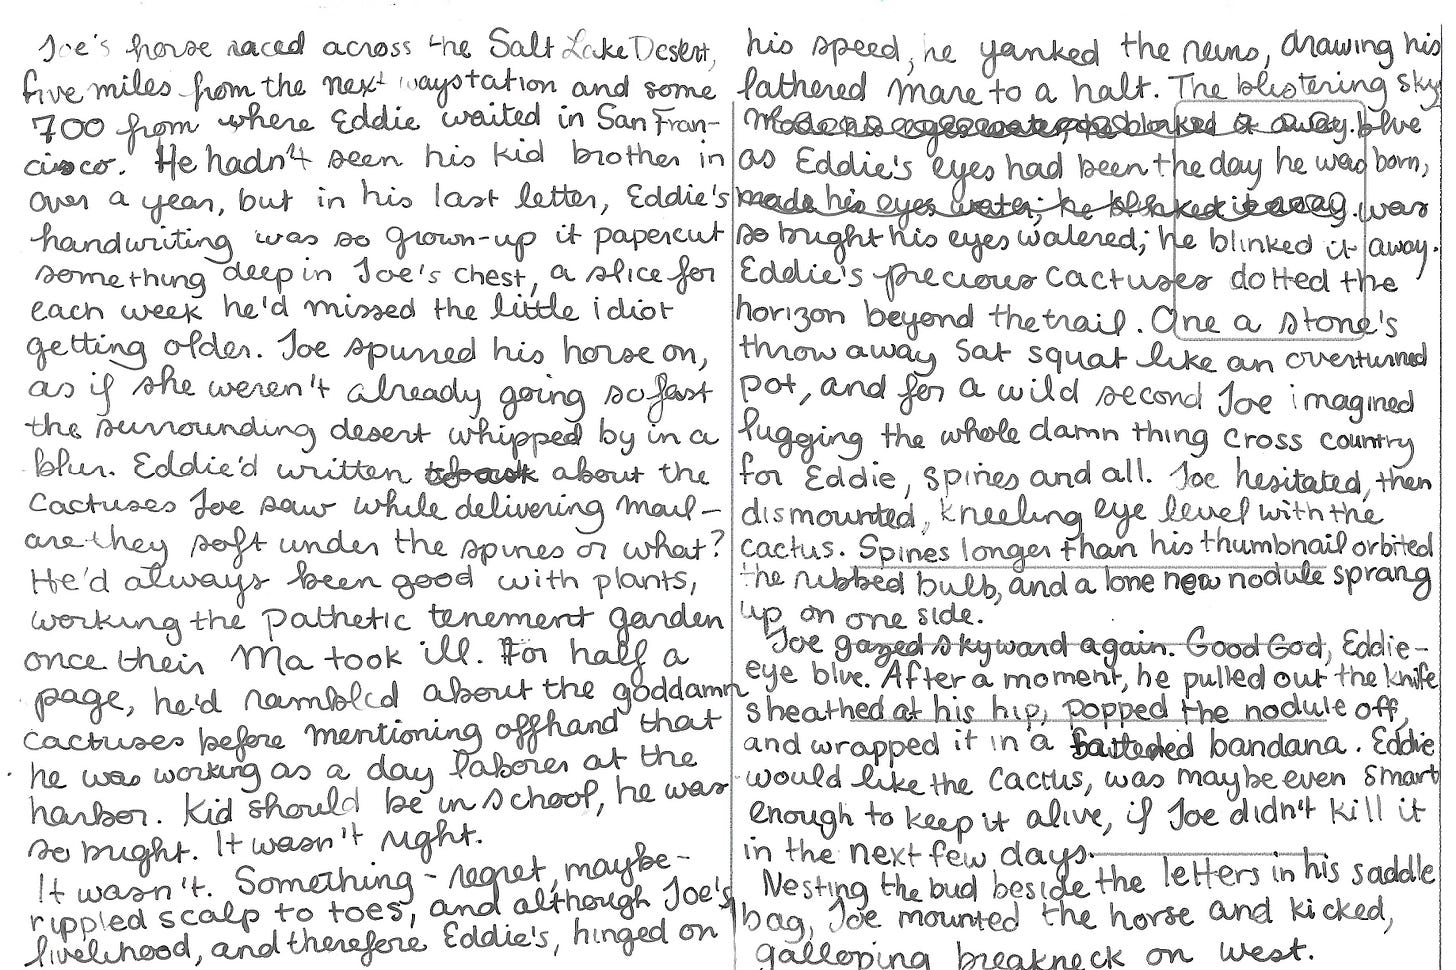 Joe's horse raced across the Salt Lake Desert,
five miles from the next waystation and some
700 from where Eddie waited in San Fran-
cisco. He hadn't seen his kid brother in
over a year, but in his last letter, Eddie's
handwriting was so grown-up it papercut
something deep in Joe's chest, a slice for
each week he'd missed the little idiot
getting older. Joe spurred his horse on,
as if she weren't already going so fast
the surrounding desert whipped by in a
blur. Eddie'd written about the
cactuses Joe saw while delivering mail -
are they soft under the spines or what?
He'd always been good with plants,
working the pathetic tenement garden
once their Ma took ill. For half a
page, he'd rambled about the goddamn
cactuses before mentioning offhand that
he was working as a day laborer at the
harbor. Kid should be in school, he was
so bright. It wasn't right.
It wasn't. Something - regret, maybe -
rippled scalp to toes, and although Joe's
livelihood, and therefore Eddie's, hinged on
his speed, he yanked the reins, drawing his
lathered mare to a halt. The blistering sky
made his eyes water; he blinked it away. blue
as Eddie's eyes had been the day he was born,
made his eyes water; he blinked it away. was
so bright his eyes watered; he blinked it away.
Eddie's precious cactuses dotted the
horizon beyond the trail. One a stone's
throw away sat squat like an overturned
pot, and for a wild second Joe imagined
lugging the whole damn thing cross country
for Eddie, spines and all. Joe hesitated, then
dismounted, kneeling eye level with the
cactus. Spines longer than his thumbnail orbited
the ribbed bulb, and a lone new nodule sprang
up on one side.
Joe gazed skyward again. Good God, Eddie-
eye blue. After a moment, he pulled out the knife
sheathed at his hip, popped the nodule off,
and wrapped it in a bandana. Eddie
would like the cactus, was maybe even smart
enough to keep it alive, if Joe didn't kill it
in the next few days.
Nesting the bud beside the letters in his saddle
bag, Joe mounted the horse and kicked,
galloping breakneck on west.